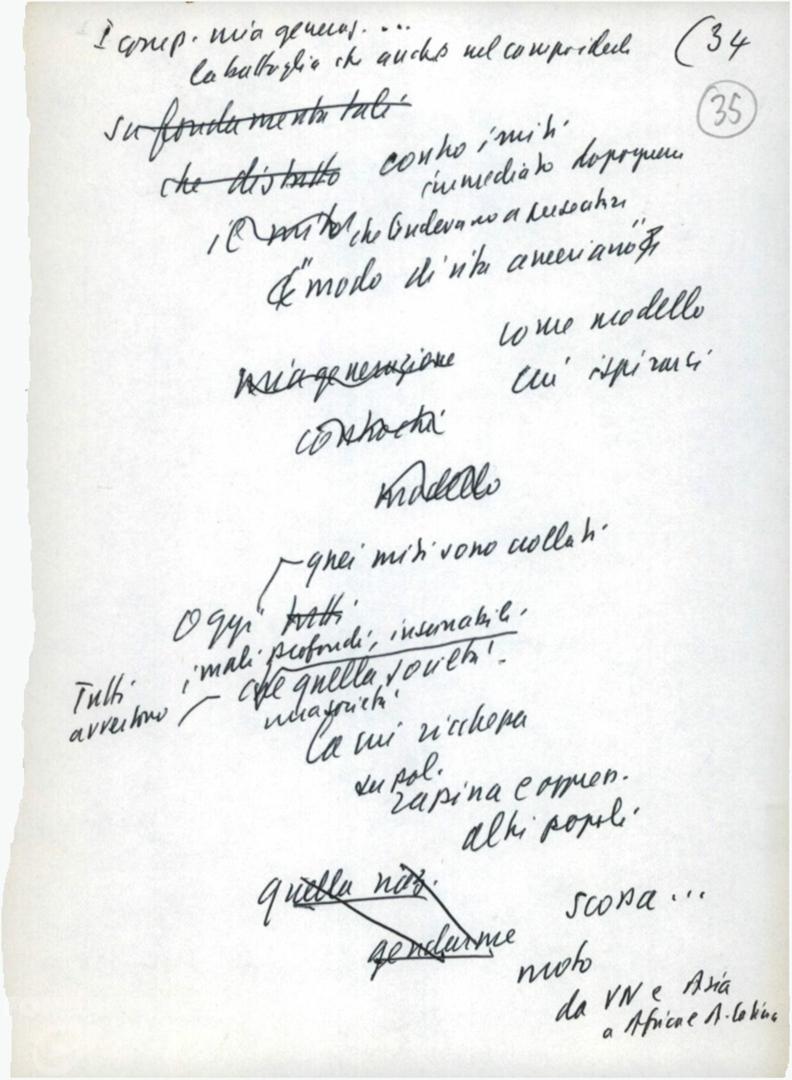 I comp. mia generaz. ...
la battaglia che anche nel campo ideale
(34
35
su fondamentali
che distrutto contro i miti
immediato dopoguerra
il mito che tendevano a presentare
il "modo di vita americano"
mia generazione come modello
cui ispirarsi
contro chi
modello
quei miti sono crollati
Oggi tutti
i mali profondi, insanabili
Tutti
avvertono
che quella società
una società
la cui ricchezza
su pol.
rapina e oppres.
altri popoli
quella naz.
gendarme
scossa ...
moto
da VN e Asia
a Africa e A. Latina